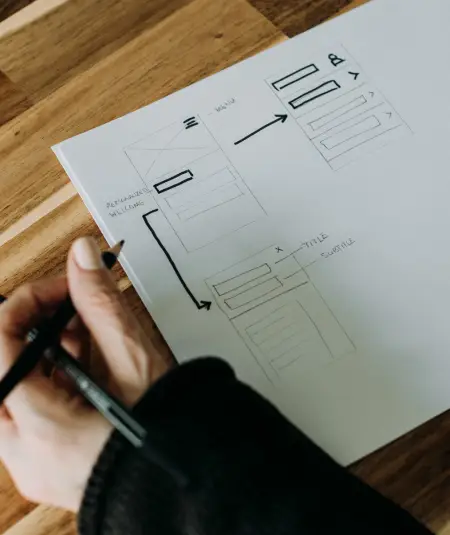 MENU
PERSONALIZED
WELCOME
X
TITLE
SUBTITLE